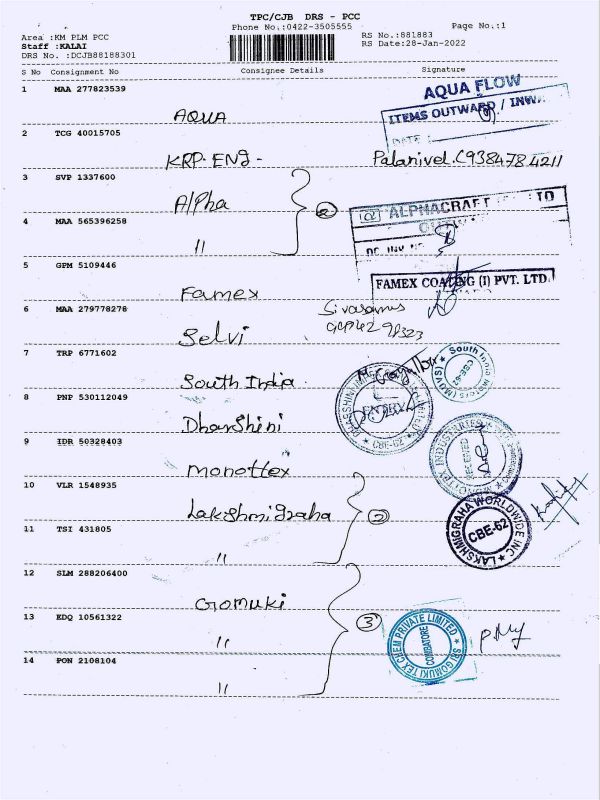 TPC/CJB DRS - PCC
Phone No.:0422-3505555
Page No.:1
Area :KM PLM PCC
Staff :KALAI
DRS No. :DCJB88188301
RS No.:881883
RS Date:28-Jan-2022
S No Consignment No Consignee Details Signature
1 MAA 277823539
AQUA
AQUA FLOW
ITEMS OUTWARD / INW
DATE :
2 TCG 40015705
KRP. ENG -
Palanivel. (9384784211
3 SVP 1337600
Alpha
2
ALPHACRAFT LTD
4 MAA 565396258
"
5 GPM 5109446
Famex
FAMEX COATING (I) PVT. LTD.
6 MAA 279778278
Selvi
7 TRP 6771602
South India
South India
(MOVS)
CBE-62
8 PNP 530112049
Dharshini
ENTRY
CBE-62
9 IDR 50328403
Monottex
RECEIVED
10 VLR 1548935
Lakshmigraha
2
LAKSHMIGRAHA WORLDWIDE INC
CBE-62
11 TSI 431805
"
12 SLM 288206400
Gomuki
13 EDQ 10561322
"
3
SRI GOMUKI TEX CHEM PRIVATE LIMITED
COIMBATORE
14 PON 2108104
"